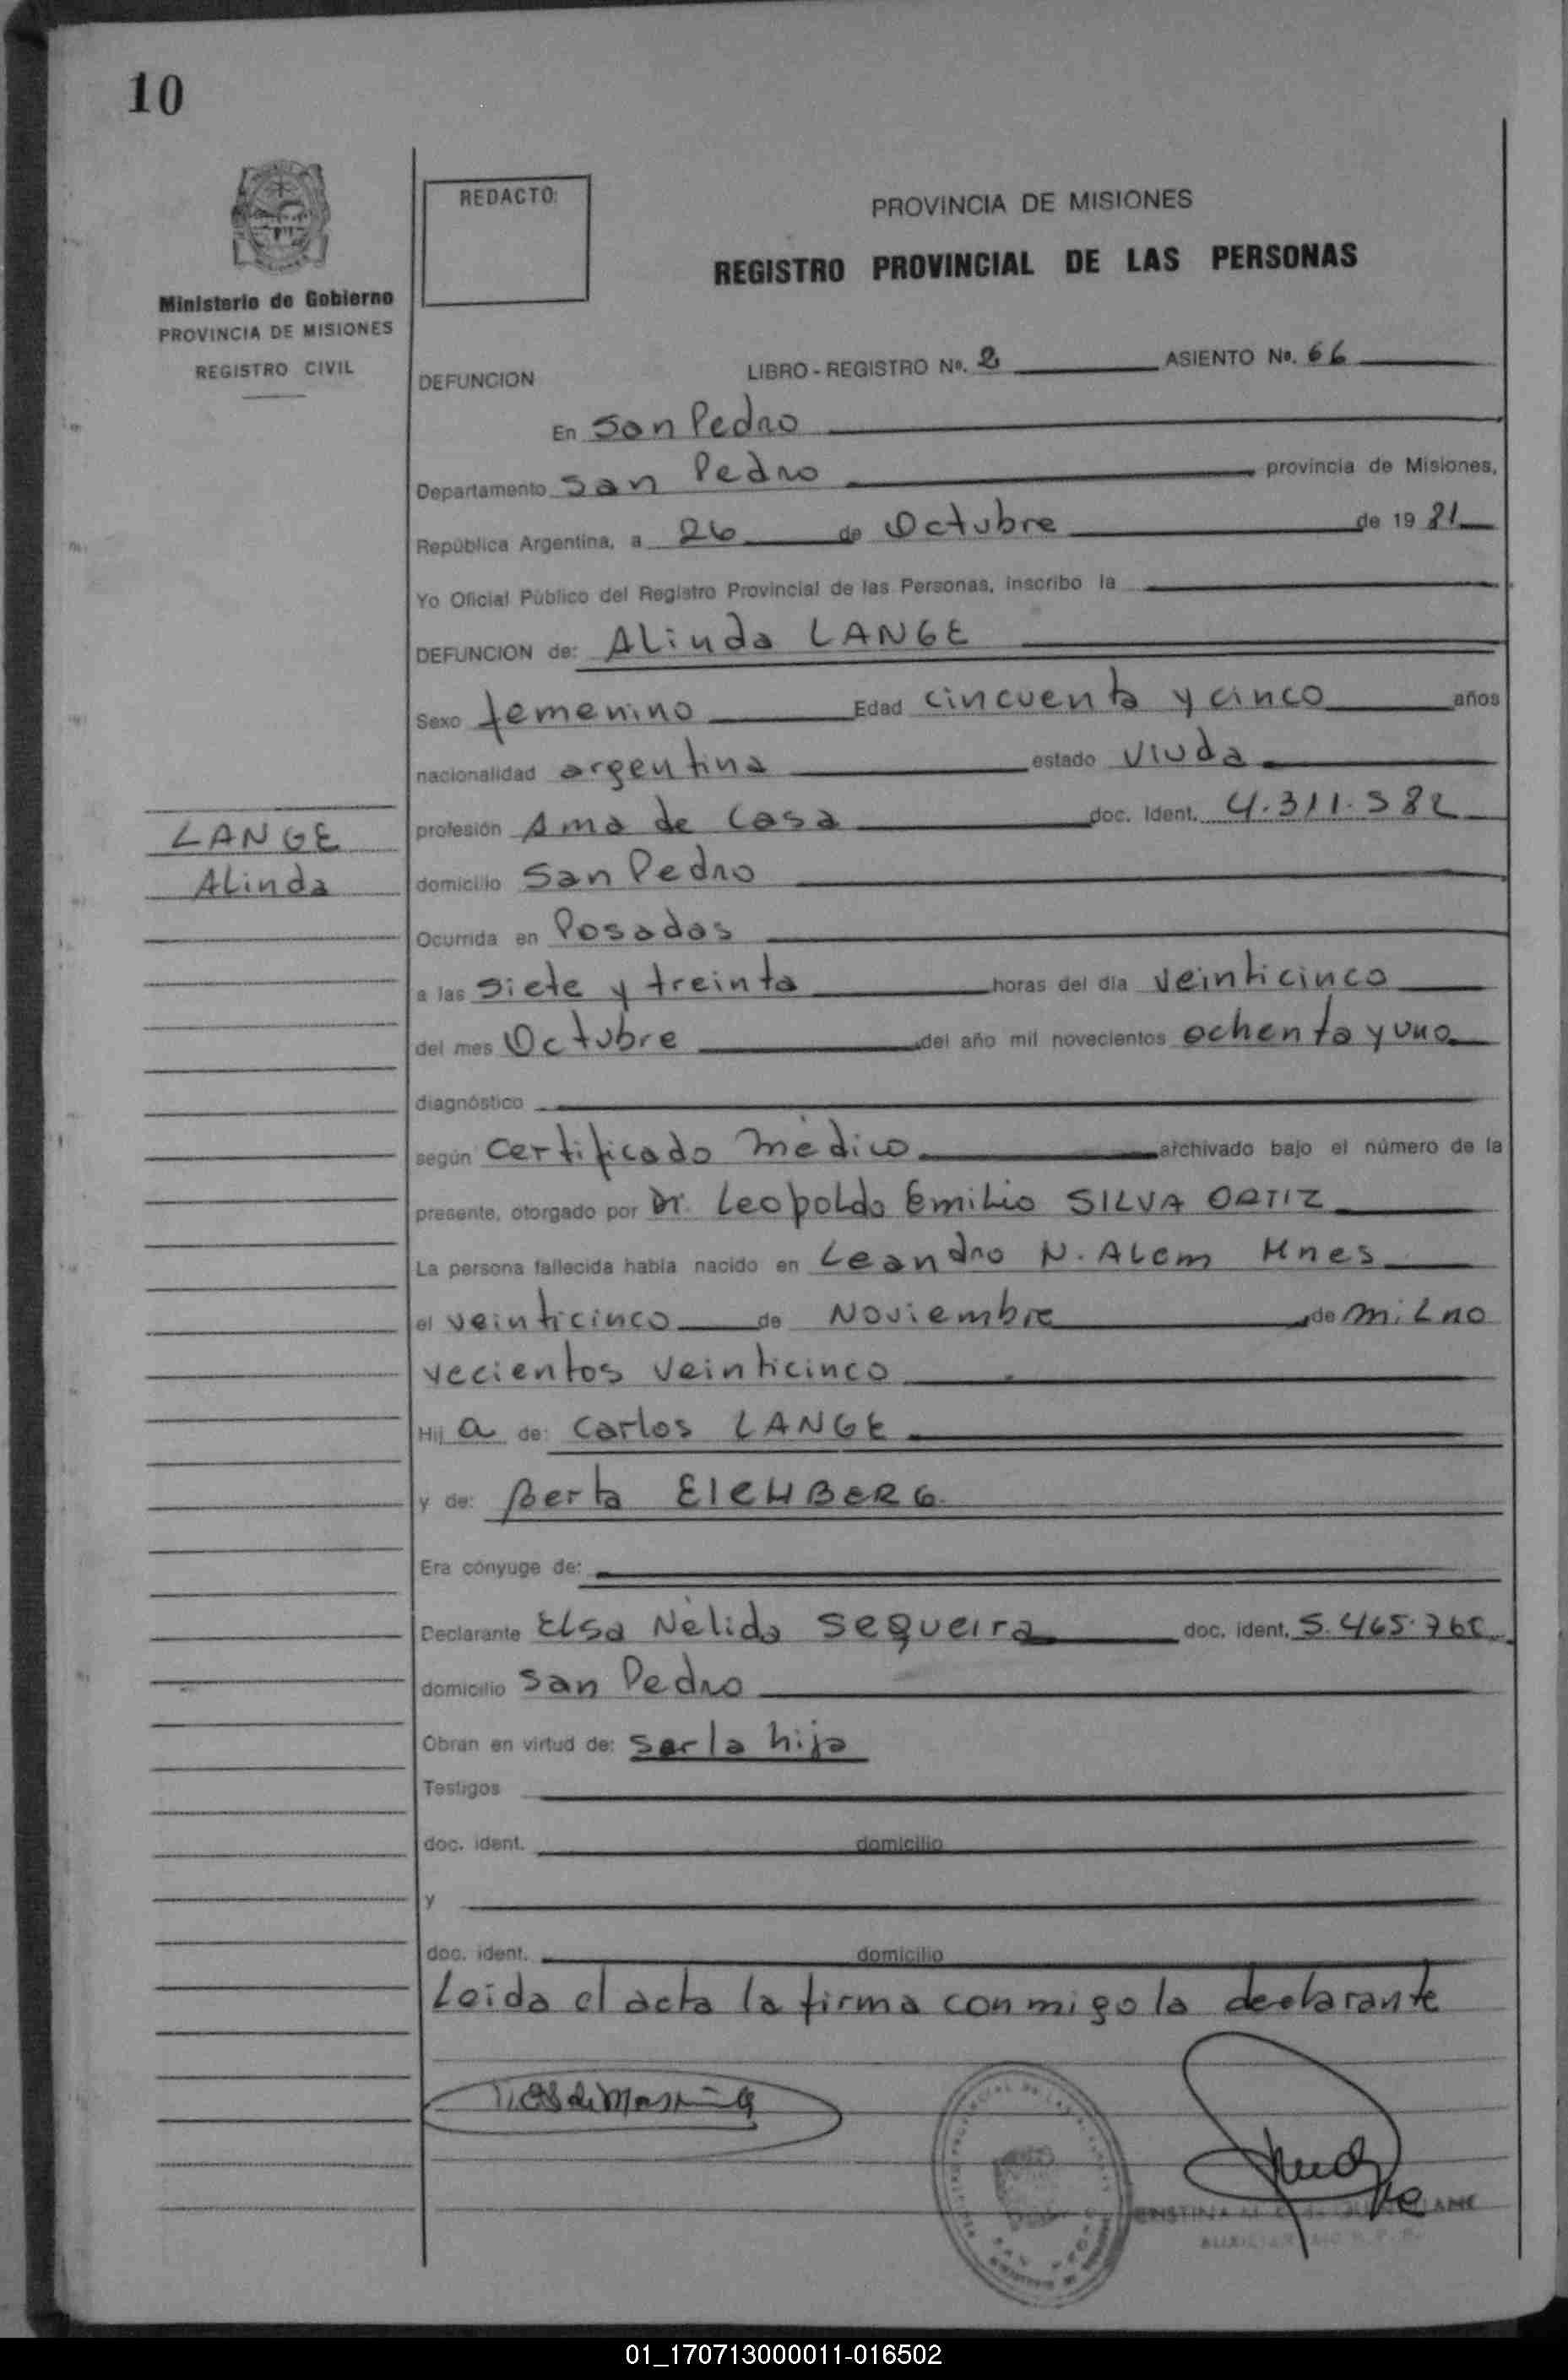 10
REDACTO:
PROVINCIA DE MISIONES
REGISTRO PROVINCIAL DE LAS PERSONAS
Ministerio de Gobierno
PROVINCIA DE MISIONES
REGISTRO CIVIL
DEFUNCION LIBRO - REGISTRO Nº. 2 ASIENTO Nº. 66
En San Pedro
Departamento San Pedro provincia de Misiones,
República Argentina, a 26 de Octubre de 19 81
Yo Oficial Público del Registro Provincial de las Personas, inscribo la
DEFUNCION de: Alinda LANGE
Sexo femenino Edad cincuenta y cinco años
nacionalidad argentina estado viuda
LANGE
Alinda
profesión Ama de Casa doc. Ident. 4.311.582
domicilio San Pedro
Ocurrida en Posadas
a las siete y treinta horas del día veinticinco
del mes Octubre del año mil novecientos ochenta y uno
diagnóstico
según certificado médico archivado bajo el número de la
presente, otorgado por Dr. Leopoldo Emilio SILVA ORTIZ
La persona fallecida había nacido en Leandro N. Alem Mnes
el veinticinco de Noviembre de mil no
vecientos veinticinco
Hij a de: Carlos LANGE
y de: Berta EICHBERG
Era cónyuge de:
Declarante Elsa Nélida Sequeira doc. ident.
domicilio San Pedro
Obran en virtud de: ser la hija
Testigos
doc. ident. domicilio
y
doc. ident. domicilio
Leida el acta la firma conmigo la declarante
01_170713000011-016502